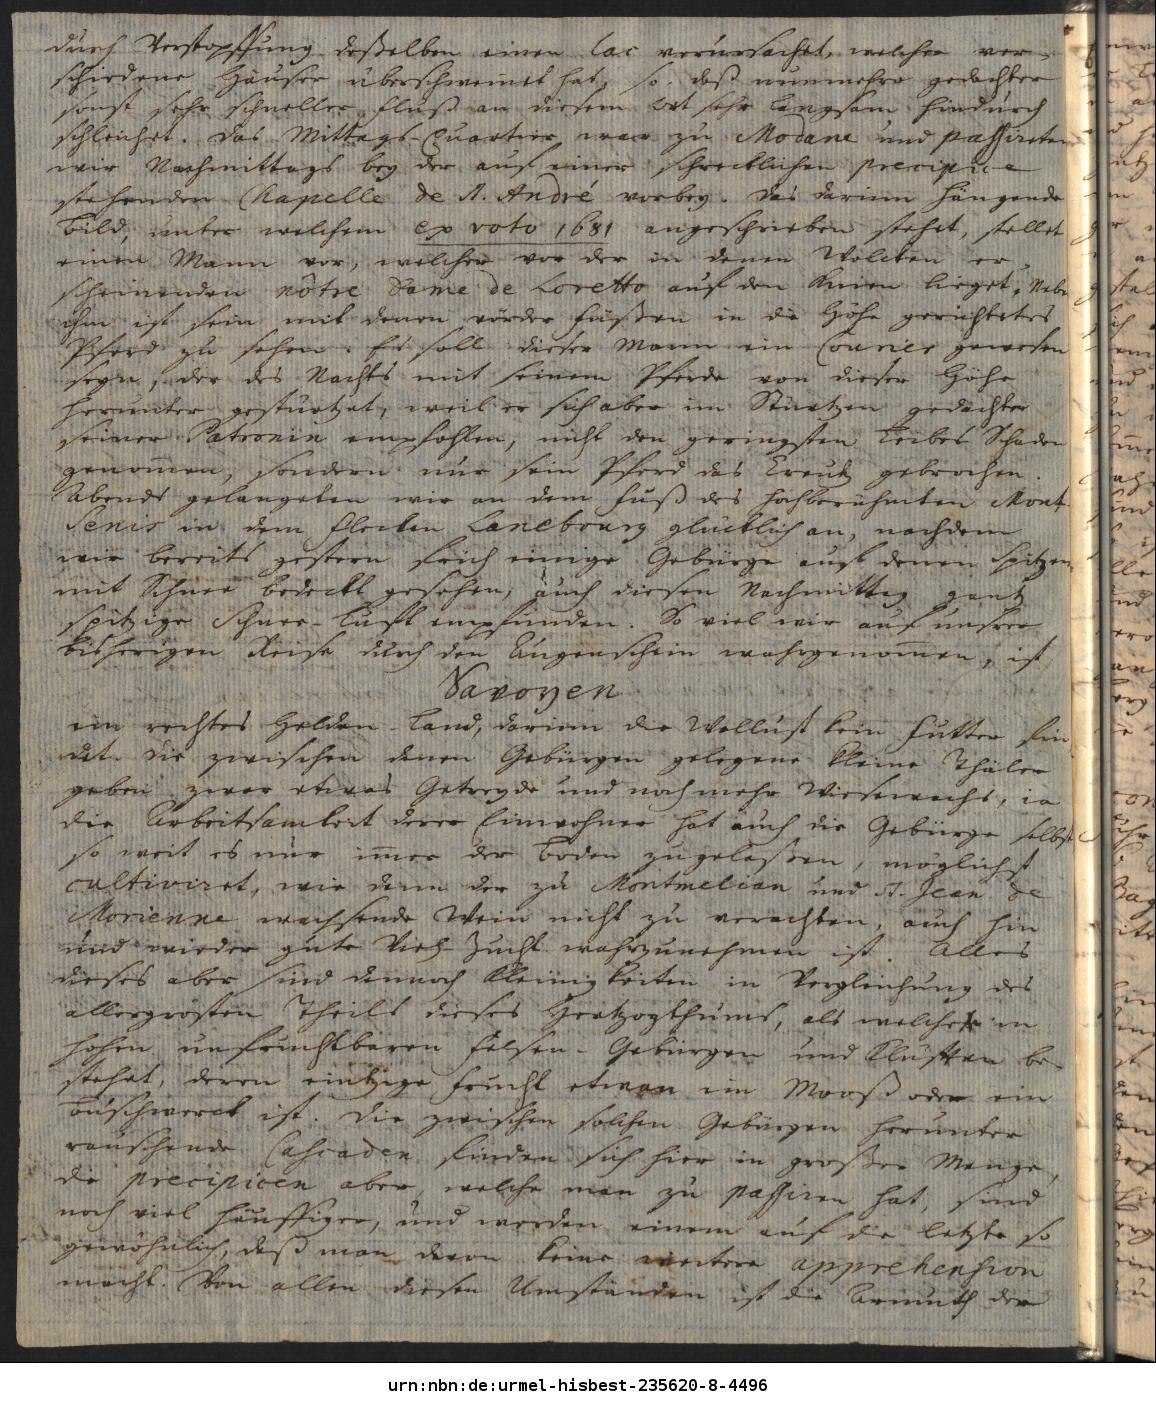 durch Verstopffung deßelben einen lac verursachet, welcher ver-
schiedene Häuser überschwemet hat, so daß nunmehro gedachter
sonst sehr schneller Fluß an diesem ort sehr langsam hindurch
schleichet. Das Mittags-Quartier war zu Modane und passireten
wir Nachmittags bey der auf einer schrecklichen precipice
stehenden Chapelle de St. André vorbey. Das darinn hängende
Bild, unter welchem ex voto 1681 angeschrieben stehet, stellet
einen Mann vor, welcher vor der in denen Wolcken er-
scheinenden nôtre Dame de Loretto auf den Knien lieget, Nebst
ihm ist sein mit denen vörder Füßen in die Höhe gerichtetes
Pferd zu sehen. Es soll dieser Mann ein Courier gewesen
seyn, der des Nachts mit seinem Pferde von dieser Höhe
herunter gestürtzet, weil er sich aber im Stürtzen gedachter
seiner Patronin empfohlen, nicht den geringsten Leibes Schaden
genommen, sondern nur sein Pferd das Creutz gebrochen.
Abends gelangeten wir an dem Fuß des hochberühmten Mont
Senis in dem Flecken Lanebourg glücklich an, nachdem
wir bereits gestern früh einige Gebürge auf denen Spitzen
mit Schnee bedeckt gesehen, auch diesen Nachmittag gantz
spitzige Schnee-Luft empfunden. So viel wir auf unsrer
bisherigen Reise durch den Augenschein wahrgenommen, ist
Savoyen
ein rechtes Helden-Land, darinn die Wollust kein Futter fin
det. Die zwischen denen Gebürgen gelegene kleine Thäler
geben zwar etwas Getreyde und noch mehr Wiesewachs, ia
die Arbeitsamkeit derer Einwohner hat auch die Gebürge selbst
so weit es nur immer der Boden zugelaßen, möglichst
cultiviret, wie denn der zu Montmelian und St. Jean de
Morienne wachsende Wein nicht zu verachten, auch hin
und wieder gute Vieh-Zucht wahrzunehmen ist. Alles
dieses aber sind dennoch Kleinigkeiten in Vergleichung des
allergrösten Theils dieses Hertzogthums, als welches in
hohen unfruchtbaren Felsen-Gebürgen und Klüfften be-
stehet, deren eintzige Frucht etwan ein Mooß oder ein
Buschwerck ist. Die zwischen solchen Gebürgen herunter
rauschende Cascaden finden sich hier in großer Menge,
die precipicen aber, welche man zu passiren hat, sind
noch viel häuffiger, und werden einem auf die letzte so
gewöhnlich, daß man davon keine weitere apprehension
macht. Von allen diesen Umständen ist die Armuth der
urn:nbn:de:urmel-hisbest-235620-8-4496